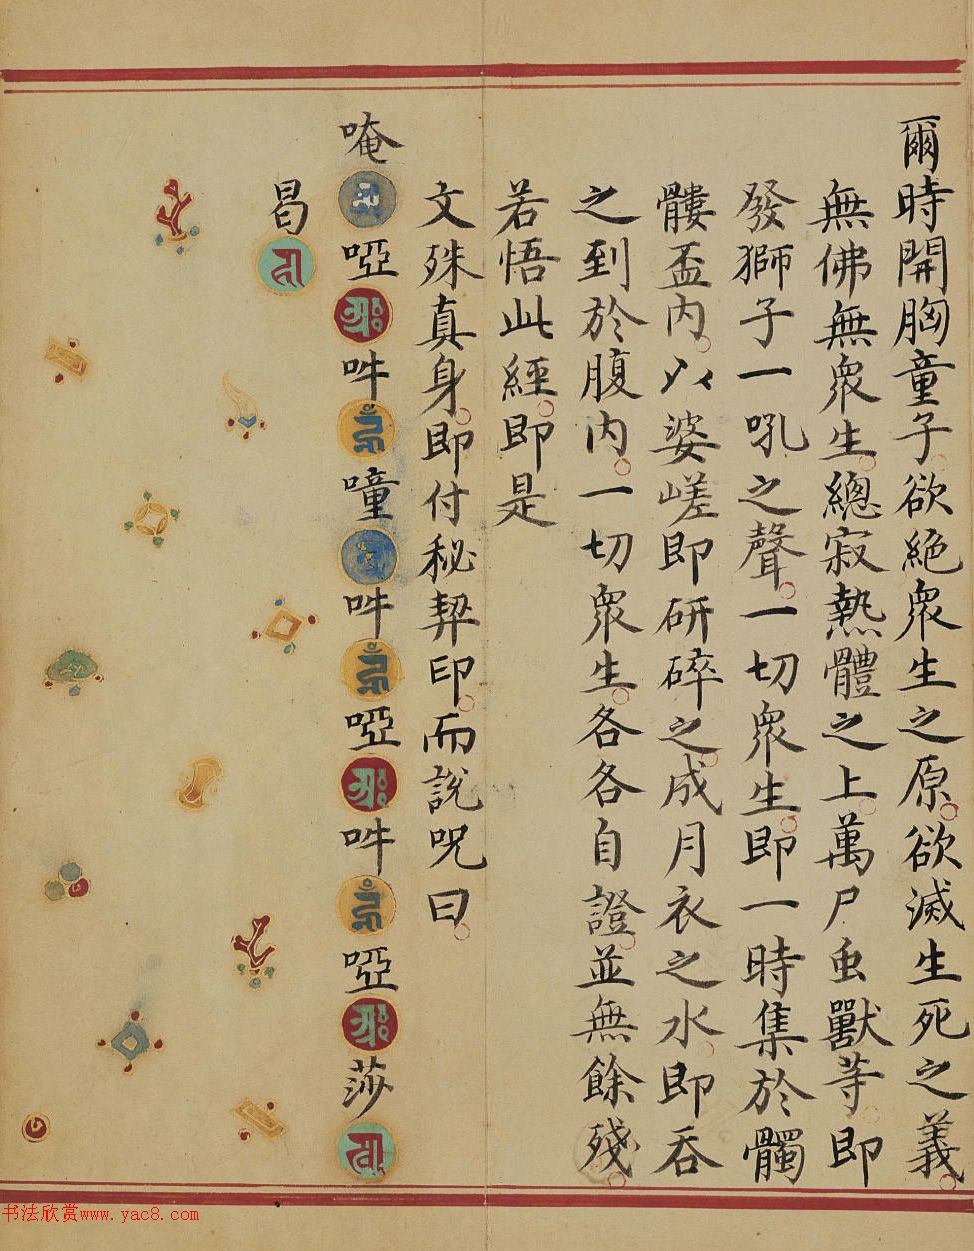 爾時開胸童子。欲絶衆生之原。欲滅生死之義。
無佛無衆生。總寂熱體之上。萬尸虫獸等。即
發獅子一吼之聲。一切衆生。即一時集於髑
髏盃内。以婆嵯即研碎之。成月衣之水。即吞
之到於腹内。一切衆生。各各自證。並無餘殘。
若悟此經。即是
文殊真身。即付秘契印。而説呪曰。
唵啞吽噇吽啞吽啞莎
曷
书法欣赏www.yac8.com